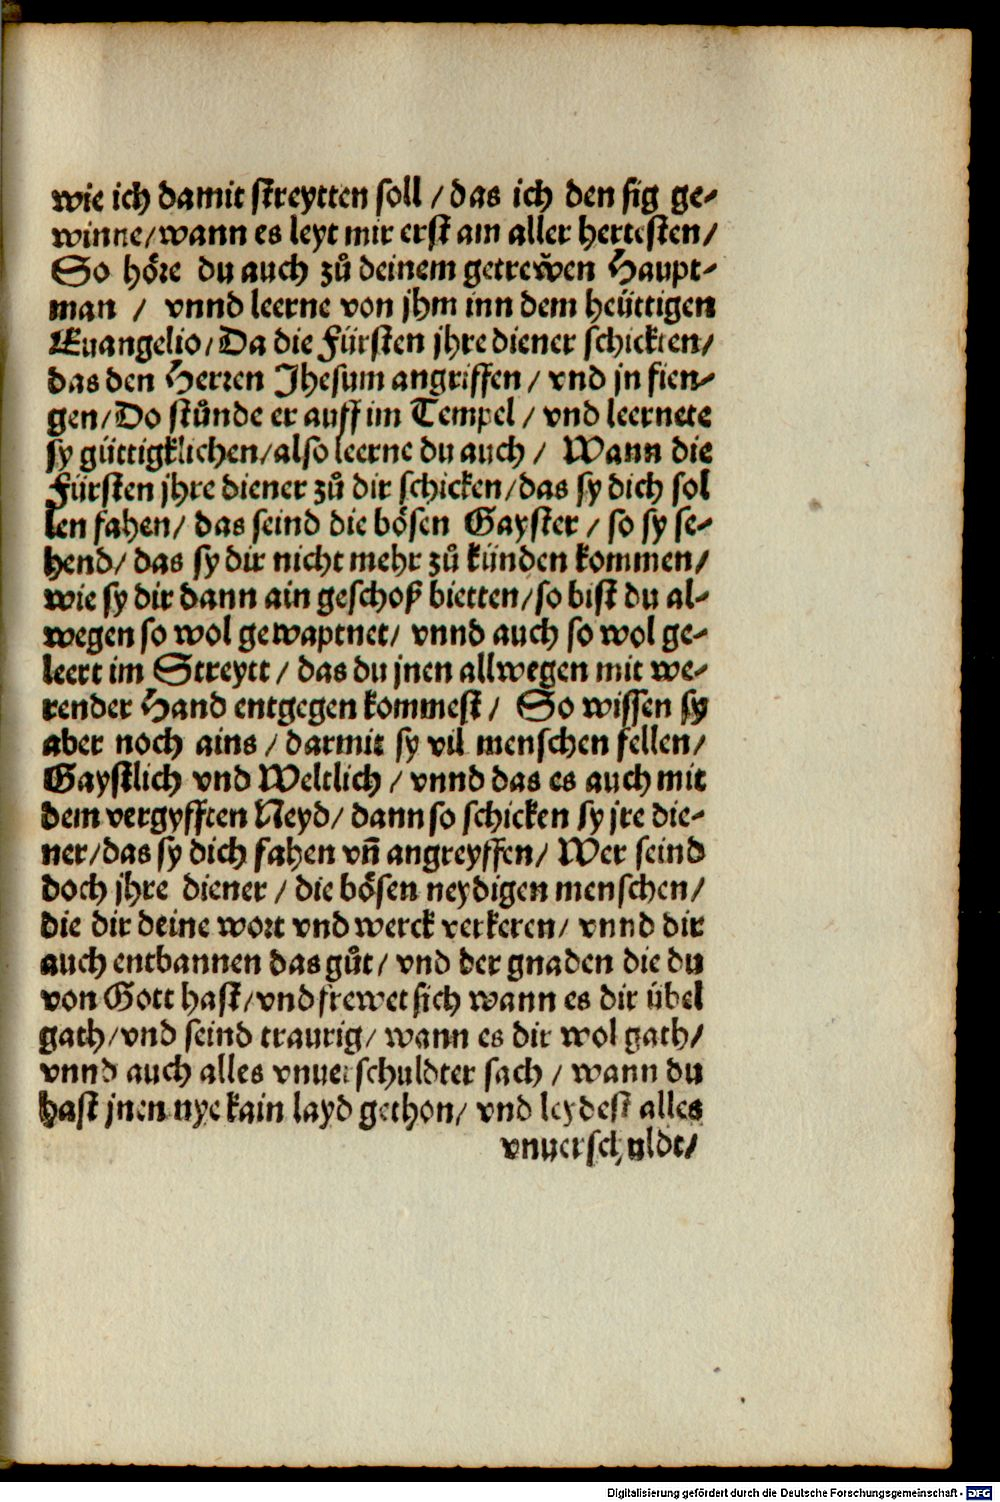 wie ich damit streytten soll / das ich den sig ge-
winne/wann es leyt mir erst am aller hertesten/
So höre du auch zů deinem getreẅen Haupt-
man / vnnd leerne von jhm inn dem heüttigen
Euangelio/Da die Fürsten jhre diener schickten/
das den Herren Jhesum angriffen / vnd jn fien-
gen/Do stůnde er auff im Tempel / vnd leernete
sy güttigklichen/also leerne du auch / Wann die
Fürsten jhre diener zů dir schicken/das sy dich sol
len fahen/ das seind die bösen Gayster / so sy se-
hend/ das sy dir nicht mehr zů künden kommen/
wie sy dir dann ain geschoß bietten/so bist du al-
wegen so wol gewaptnet/ vnnd auch so wol ge-
leert im Streytt / das du jnen allwegen mit we-
render Hand entgegen kommest / So wissen sy
aber noch ains / darmit sy vil menschen fellen/
Gaystlich vnd Weltlich / vnnd das es auch mit
dem vergyfften Neyd/ dann so schicken sy jre die-
ner/das sy dich fahen vñ angreyffen/ Wer seind
doch jhre diener / die bösen neydigen menschen/
die dir deine wort vnd werck verkeren/ vnnd dir
auch entbannen das gůt/ vnd der gnaden die du
von Gott hast/vnd frewet sich wann es dir übel
gath/vnd seind traurig/ wann es dir wol gath/
vnnd auch alles vnuerschuldter sach / wann du
hast jnen nye kain layd gethon/ vnd leydest alles
vnuerschuldt/
Digitalisierung gefördert durch die Deutsche Forschungsgemeinschaft - DFG